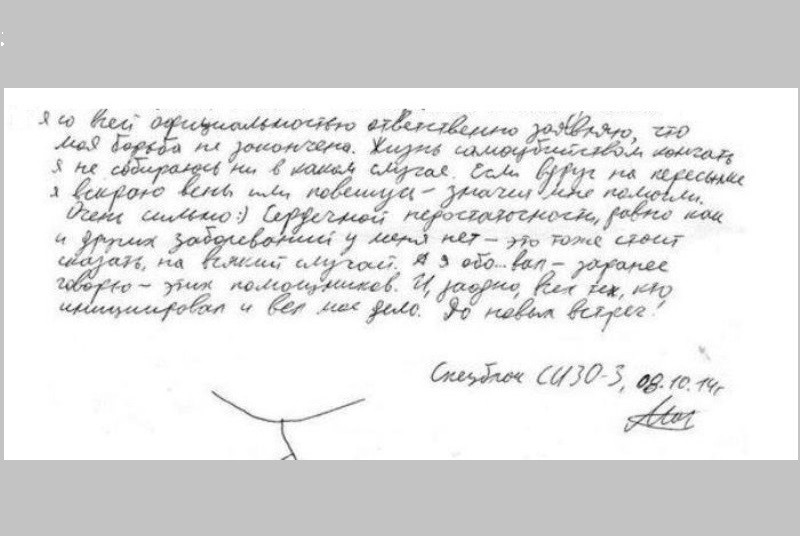 я со всей официальностью ответственно заявляю, что
моя борьба не закончена. Жизнь самоубийством кончать
я не собираюсь ни в каком случае. Если вдруг на пересылке
я вскрою вены или повешусь – значит мне помогли.
Очень сильно :) Сердечной недостаточности, равно как
и других заболеваний у меня нет – это тоже стоит
сказать, на всякий случай. А я обо...вал – заранее
говорю – этих помощников. И, заодно, всех тех, кто
инициировал и вел мое дело. До новых встреч!
Спецблок СИЗО-3, 08.10.14г